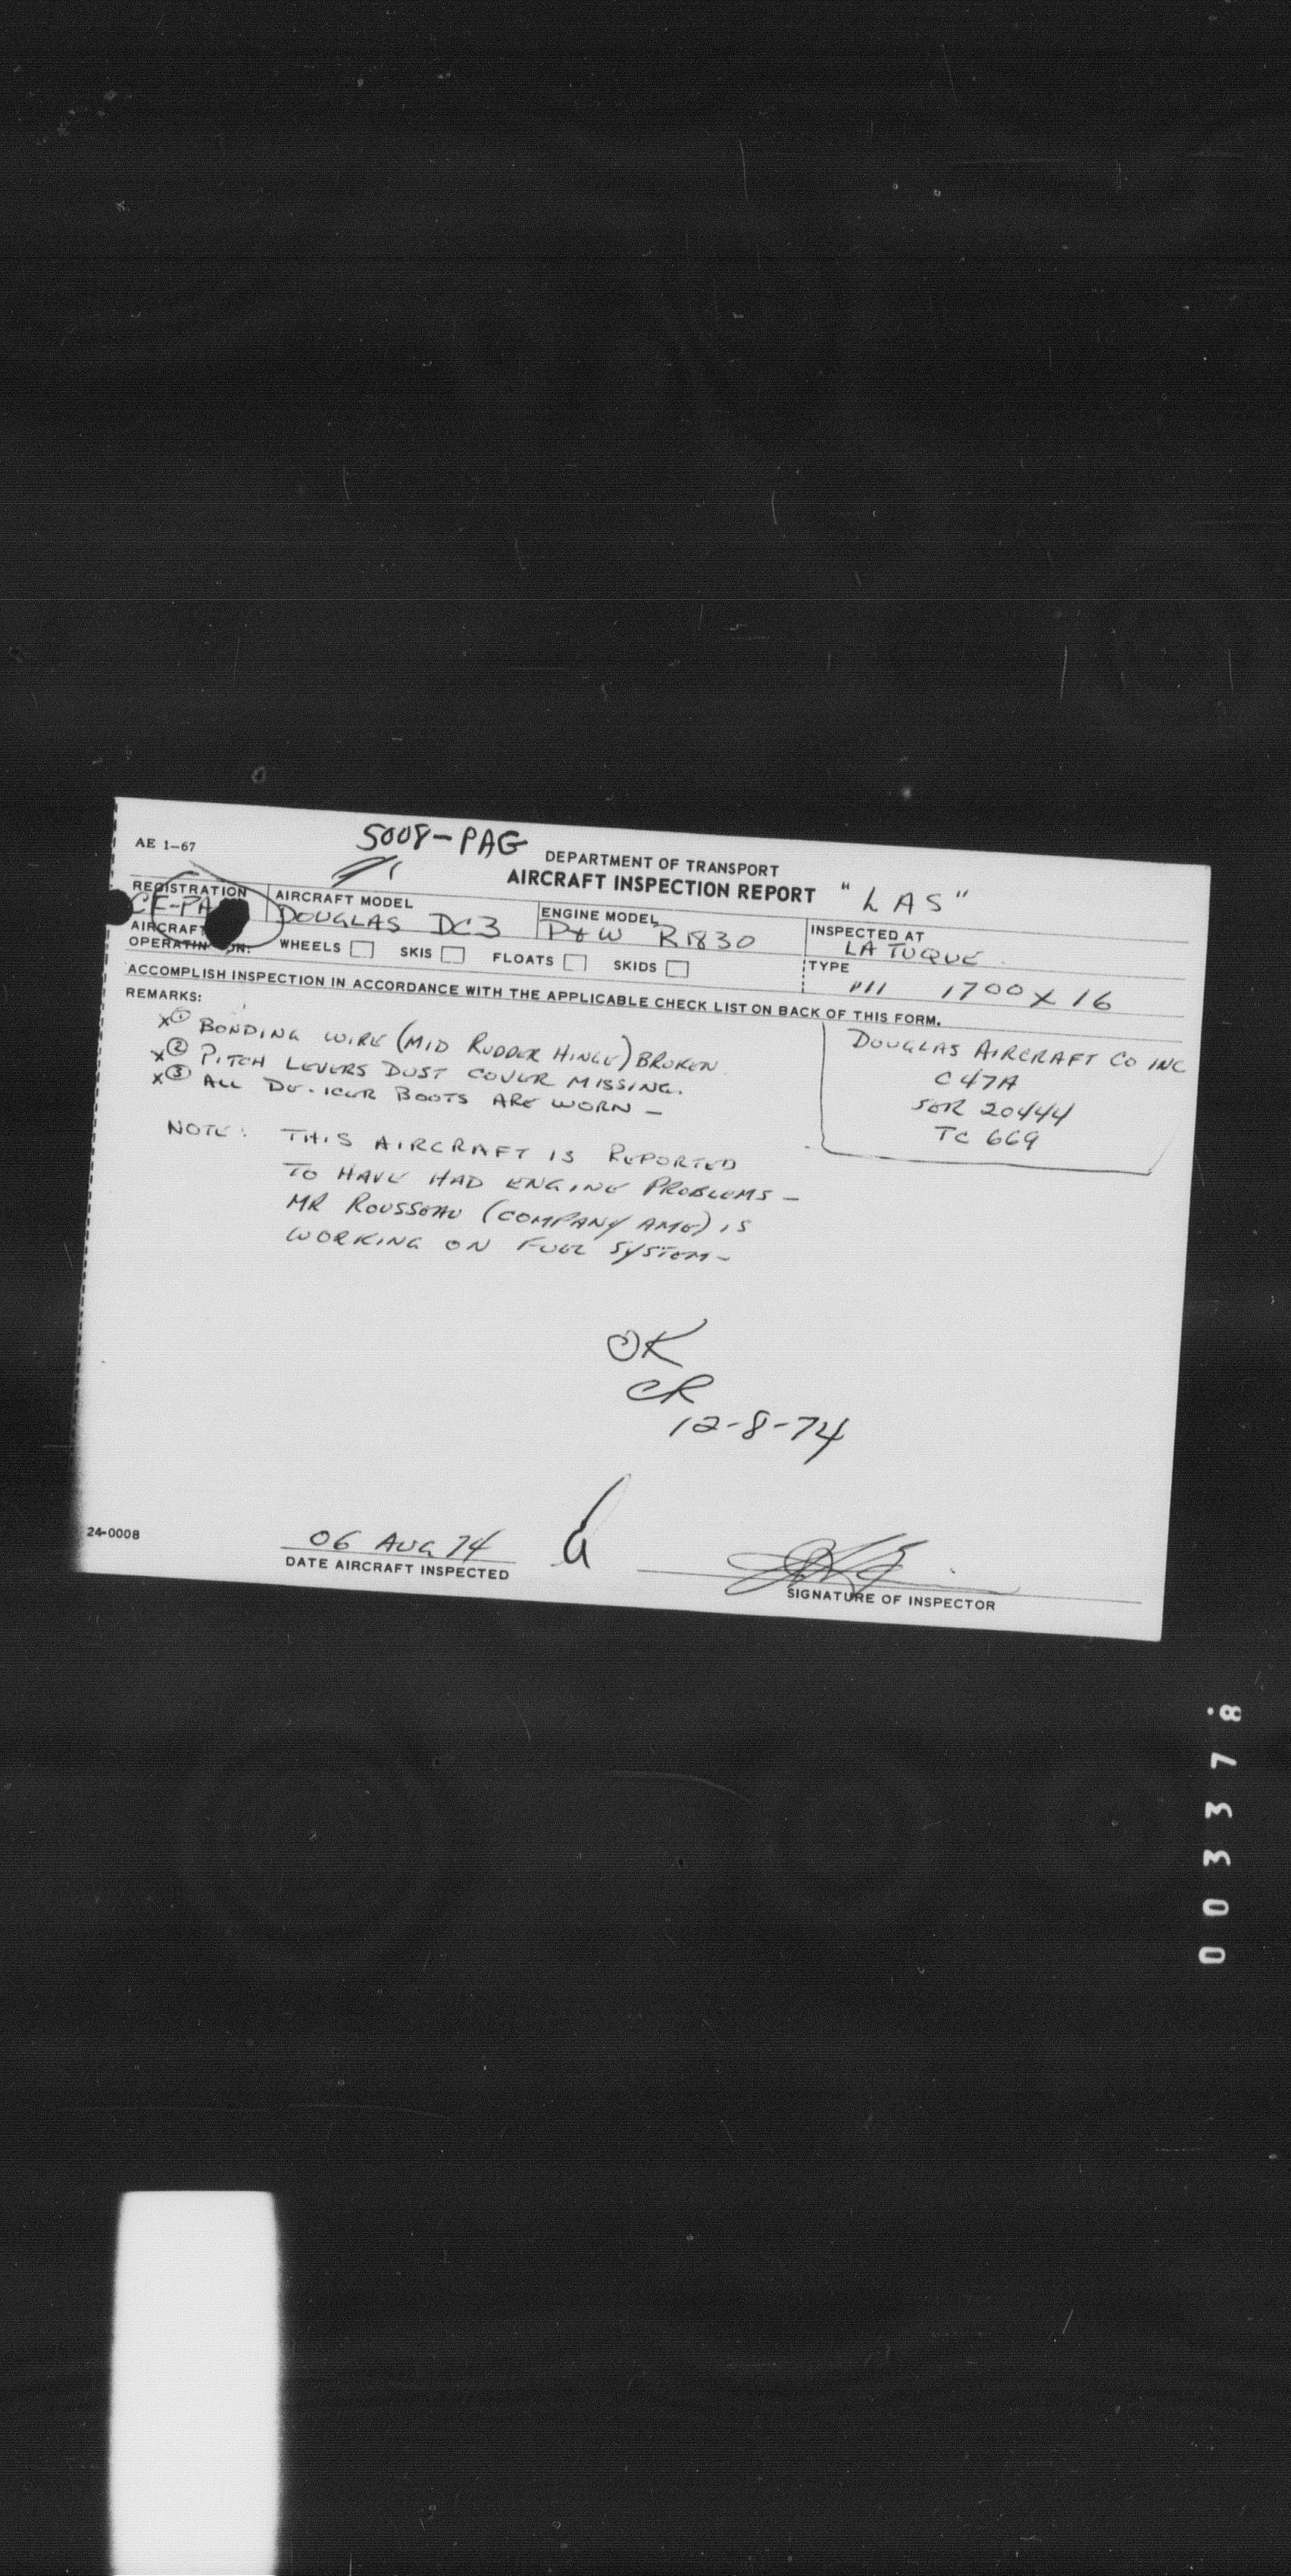 5008-PAG
AE 1-67
DEPARTMENT OF TRANSPORT
AIRCRAFT INSPECTION REPORT "LAS"
REGISTRATION
CF-PA
AIRCRAFT MODEL
DOUGLAS DC3
ENGINE MODEL
P&W R1830
INSPECTED AT
LA TUQUE
AIRCRAFT
OPERATIN ON: WHEELS SKIS FLOATS SKIDS
TYPE
1700 X 16
ACCOMPLISH INSPECTION IN ACCORDANCE WITH THE APPLICABLE CHECK LIST ON BACK OF THIS FORM.
REMARKS:
X ① BONDING WIRE (MID RUDDER HINGE) BROKEN
X ② PITCH LEVERS DUST COVER MISSING.
X ③ ALL DE-ICER BOOTS ARE WORN —
DOUGLAS AIRCRAFT CO INC
C47A
SER 20444
TC 669
NOTE: THIS AIRCRAFT IS REPORTED
TO HAVE HAD ENGINE PROBLEMS —
MR ROUSSEAU (COMPANY AME) IS
WORKING ON FUEL SYSTEM —
OK
CR
12-8-74
24-0008
06 AUG 74
DATE AIRCRAFT INSPECTED
SIGNATURE OF INSPECTOR
003378